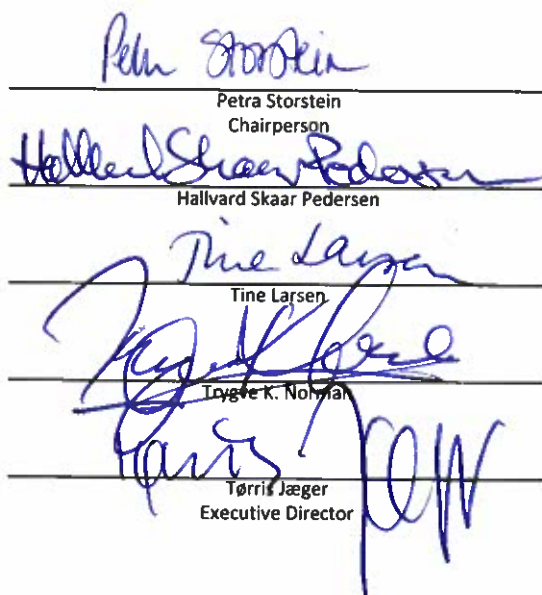 Petra Storstein
Petra Storstein
Chairperson
Hallvard Skaar Pedersen
Hallvard Skaar Pedersen
Tine Larsen
Tine Larsen
Trygve K. Norman
Tørris Jæger
Executive Director